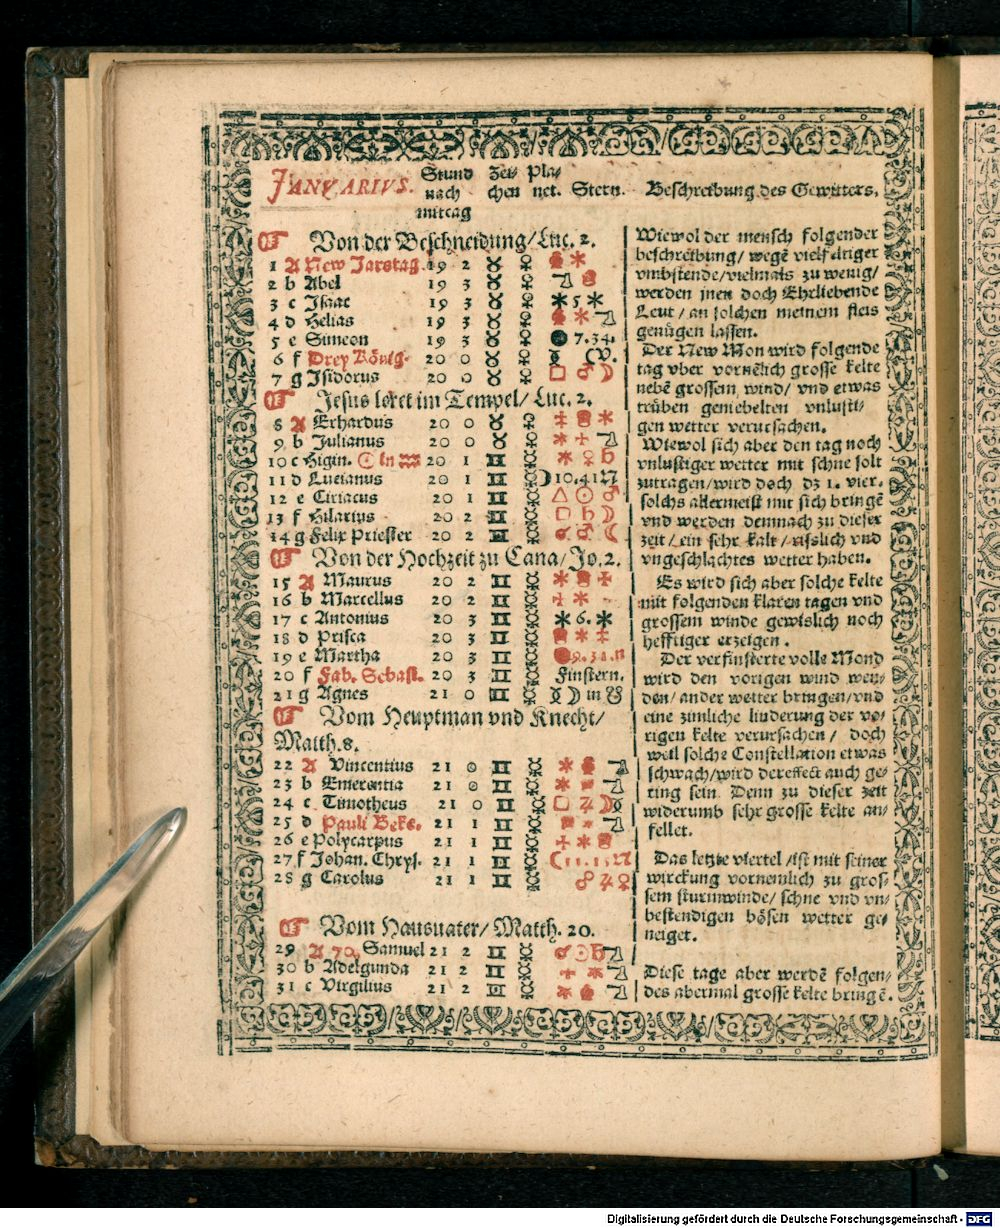 JANVARIVS. Stund Zei- Pla-
nach chen net. Stern. Beschreibung des Gewitters.
mittag
Von der Beschneidung/ Luc. 2.
1 A New Jarstag. 19 2
2 b Abel 19 3
3 c Isaac 19 3 5
4 d Helias 19 3
5 e Simeon 19 3 7.34.
6 f Drey König. 20 0
7 g Isidorus 20 0
Jesus leret im Tempel/ Luc. 2.
8 A Erhardus 20 0
9 b Julianus 20 0
10 c Higin. ☉ in ♒ 20 1 ♊ ♀ ♄
11 d Lucianus 20 1 ♊ ☽ 10.41 N
12 e Ciriacus 20 1 ♊ △ ☉ ♂
13 f Hilarius 20 2 ♊ □ ♄ ☽
14 g Felix Priester 20 2 ♊
Von der Hochzeit zu Cana/ Jo. 2.
15 A Maurus 20 2 ♊
16 b Marcellus 20 2 ♊
17 c Antonius 20 3 ♊ 6.
18 d Prisca 20 3 ♊
19 e Martha 20 3 ♊ 9.31.n
20 f Fab. Sebast. 20 3 ♊ Finstern.
21 g Agnes 21 0 ♊ in
Vom Heuptman vnd Knecht/
Matth. 8.
22 A Vincentius 21 0 ♊
23 b Emerentia 21 0 ♊
24 c Timotheus 21 0 ♊
25 d Pauli Beke. 21 1 ♊
26 e Polycarpus 21 1 ♊
27 f Johan. Chrys. 21 1 ♊
28 g Carolus 21 1 ♊ ☍ ♃ ♀
Vom Hausuater/ Matth. 20.
29 A 70. Samuel 21 2 ♊
30 b Adelgunda 21 2 ♊
31 c Virgilius 21 2 ♊
Wiewol der mensch folgender
beschreibung/ wegē vielfältiger
vmbstende/ vielmals zu wenig/
werden jnen doch Ehrliebende
Leut/ an solchen meinem fleis
genügen lassen.
Der New Mon wird folgende
tag vber vornēlich grosse kelte
nebē grossem wind/ vnd etwas
trüben geniebelten vnlusti-
gen wetter verursachen.
Wiewol sich aber den tag noch
vnlustiger wetter mit schne solt
zutragen/ wird doch dz 1. vier-
solchs allermeist mit sich bringē
vnd werden demnach zu dieser
zeit/ ein sehr kalt/ risslich vnd
vngeschlachtes wetter haben.
Es wird sich aber solche kelte
mit folgenden klaren tagen vnd
grossem winde gewislich noch
hefftiger erzeigen.
Der verfinsterte volle Mond
wird den vorigen wind wen-
den/ ander wetter bringen/ vnd
eine zimliche linderung der vo-
rigen kelte verursachen/ doch
weil solche Constellation etwas
schwach/ wird der effect auch ge-
ring sein. Denn zu dieser zeit
widerumb sehr grosse kelte an-
fellet.
Das letzte viertel/ ist mit seiner
wirckung vornemlich zu gros-
sem sturmwinde/ schne vnd vn-
bestendigen bösen wetter ge-
neiget.
Diese tage aber werdē folgen-
des abermal grosse kelte bringē.
Digitalisierung gefördert durch die Deutsche Forschungsgemeinschaft - DFG